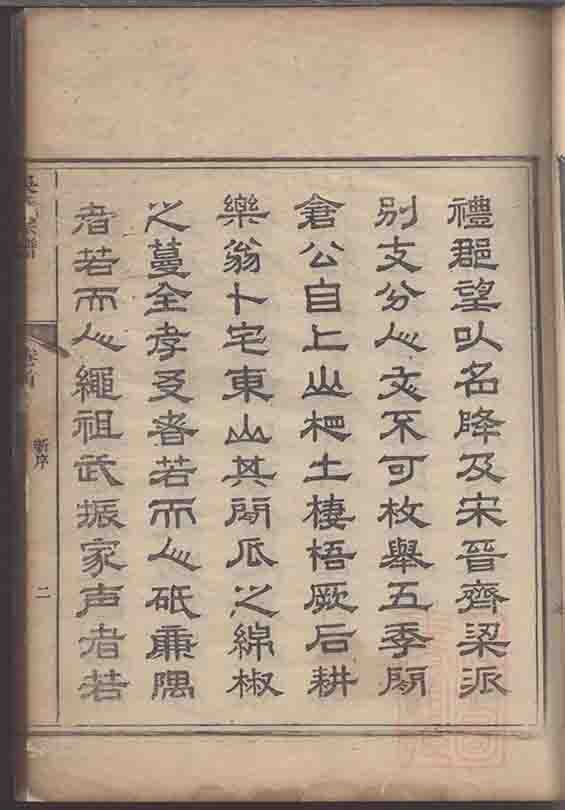 禮郡望以名降及宋晉齊梁派
別支分人文不可枚舉五季間
倉公自上山杷土棲梧厥后耕
樂翁卜宅東山其間瓜之綿椒
之蔓全孝友者若而人砥廉隅
者若而人繩祖武振家声者若
卷首
新序
二